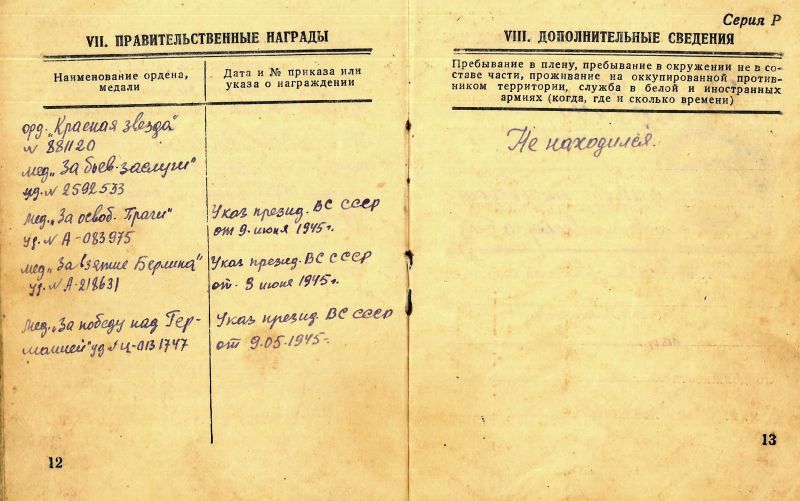 VII. ПРАВИТЕЛЬСТВЕННЫЕ НАГРАДЫ
Наименование ордена, медали
Дата и № приказа или указа о награждении
орд. „Красная звезда"
N 881120
мед „За боев. заслуги"
уд. N 2592533
мед. „За освоб. Праги"
уд. N А-083975
Указ презид. ВС СССР
от 9. июня 1945г.
мед „За взятие Берлина"
уд. N А-218631
Указ презид. ВС СССР
от 9 июня 1945г.
мед. „За победу над Гер-
манией" уд N Ц-0131747
Указ презид. ВС СССР
от 9.05.1945г.
12
Серия Р
VIII. ДОПОЛНИТЕЛЬНЫЕ СВЕДЕНИЯ
Пребывание в плену, пребывание в окружении не в со-
ставе части, проживание на оккупированной против-
ником территории, служба в белой и иностранных
армиях (когда, где и сколько времени)
Не находился.
13